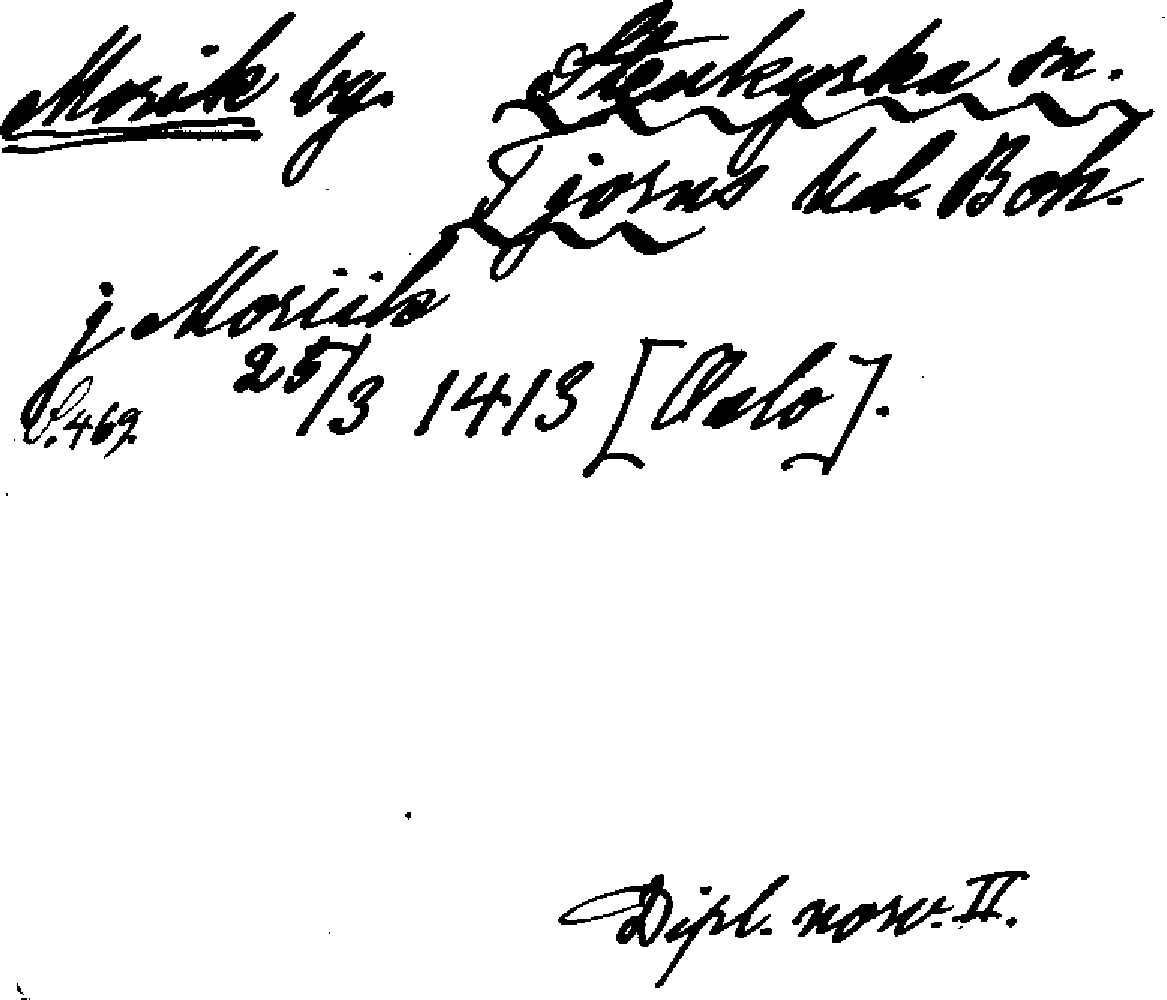 Morik by. Stenkyrka sn.
Tjörns hd. Boh.
j Moriik
S. 469. 25/3 1413 [Oslo].
Dipl. norv. II.